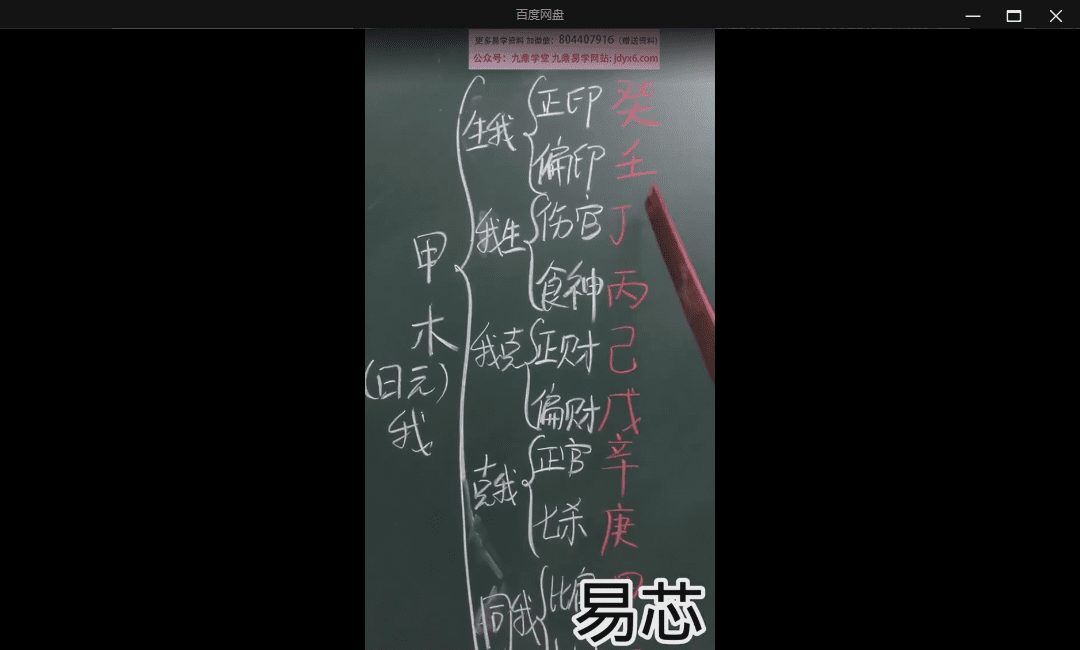 百度网盘
更多易学资料 加微信：804407916（赠送资料）
公众号：九鼎学堂 九鼎易学网站: jdyx6.com
生我 正印 癸
偏印 壬
我生 伤官 丁
食神 丙
甲木
(日元)
我
我克 正财 己
偏财 戊
克我 正官 辛
七杀 庚
同我 比肩 甲
易芯